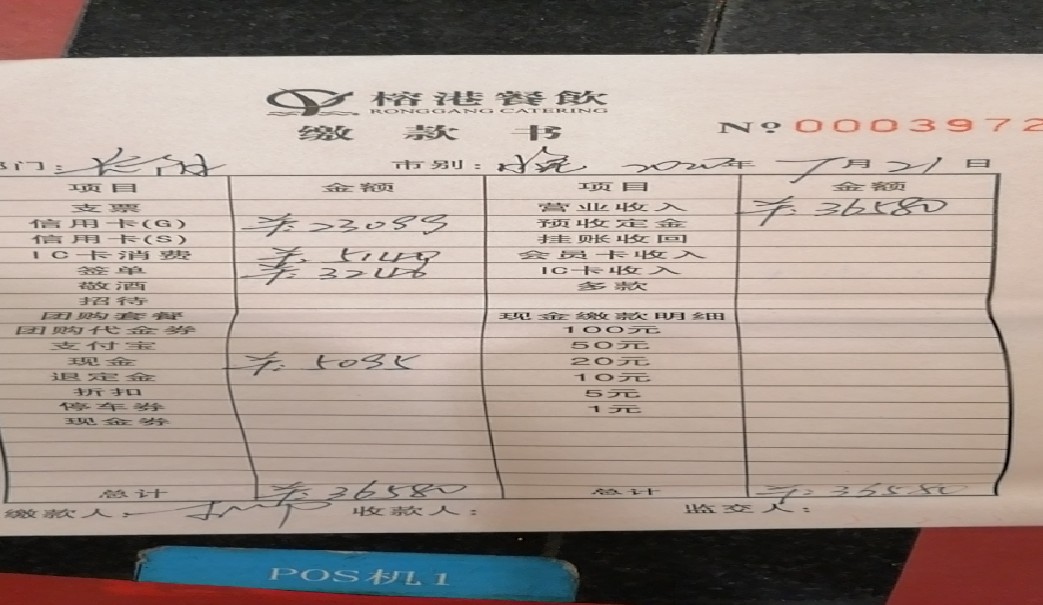 榕港餐飲
RONGGANG CATERING
缴款书 № 0003972
部门: 市别: 年 7月21日
项目 金额 项目 金额
支票 营业收入 ¥: 36580
信用卡(G) ¥: 23099 预收定金
信用卡(S) 挂账收回
IC卡消费 ¥: 5140 会员卡收入
签单 ¥: 3246 IC卡收入
敬酒 多款
招待
团购套餐 现金缴款明细
团购代金券 100元
支付宝 50元
现金 ¥: 5095 20元
退定金 10元
折扣 5元
停车券 1元
现金券
总计 ¥: 36580 总计 ¥: 36580
缴款人: 收款人: 监交人:
POS机1